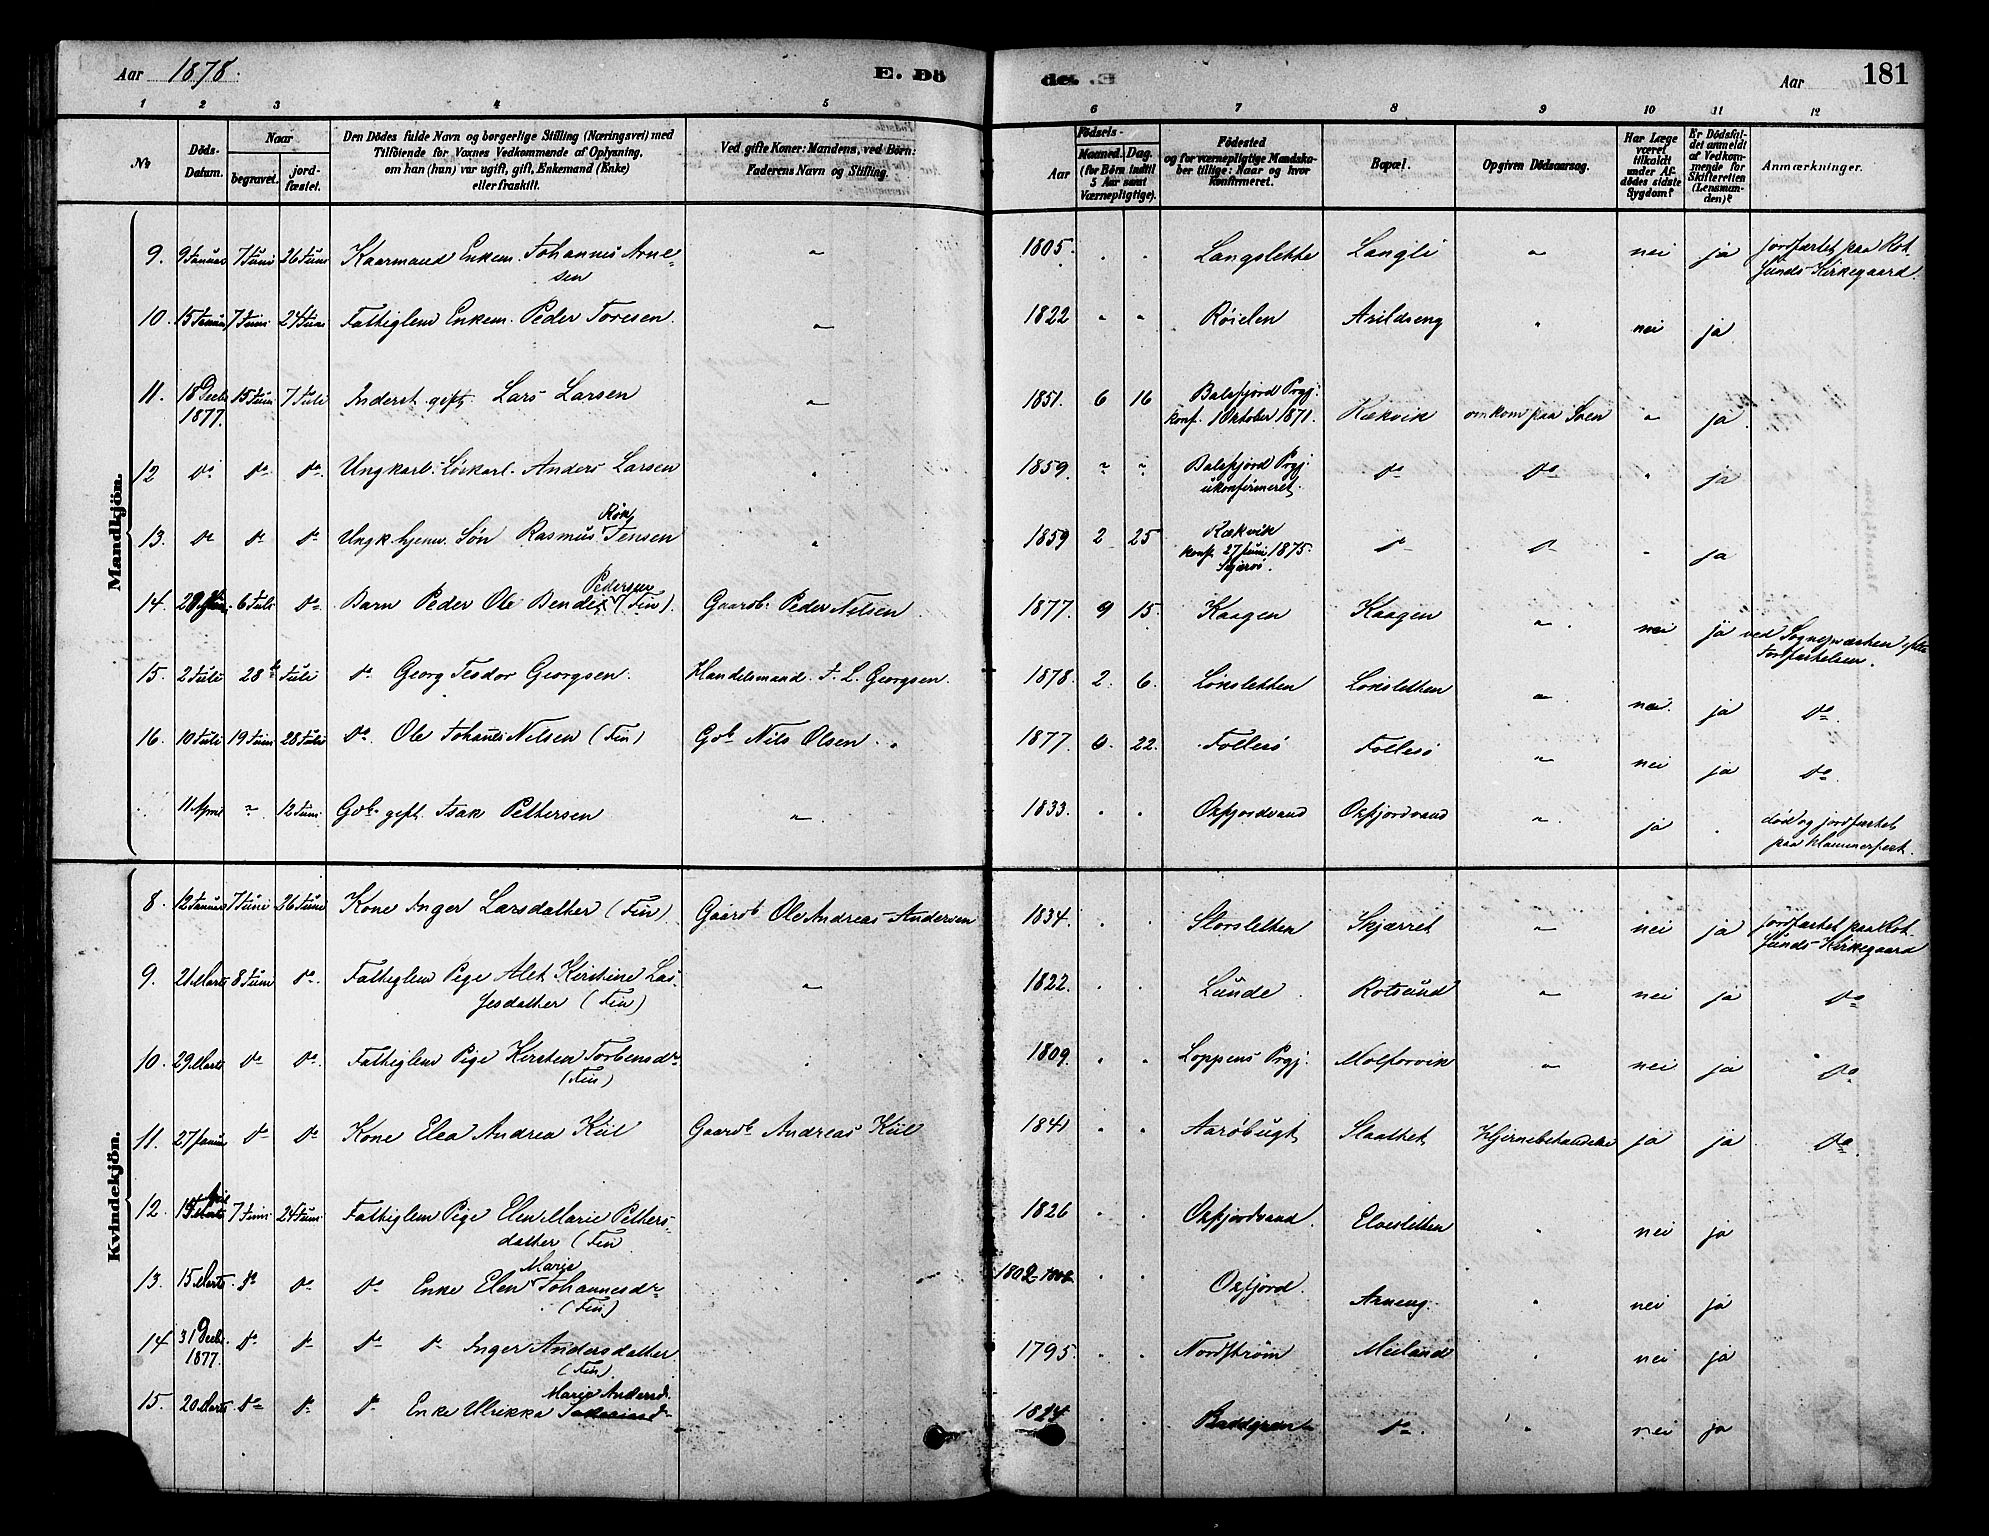 Aar 1878.
E. Dö
de. E
Aar
181
1 2 3 4 5 6 7 8 9 10 11 12
No
Döds-Datum.
Naar
begravet.
jord-fæstet.
Den Dödes fulde Navn og borgerlige Stilling (Næringsvei) med
Tilföiende for Voxnes Vedkommende af Oplysning,
om han (hun) var ugift, gift, Enkemand (Enke)
eller fraskilt.
Ved gifte Koner: Mandens, ved Börn:
Faderens Navn og Stilling.
Födsels-
Aar
Maaned. Dag.
(for Börn indtil
5 Aar samt
Værnepligtige).
Födested
og for værnepligtige Mandska-
ber tillige: Naar og hvor
konfirmeret.
Bopæl.
Opgiven Dödsaarsag.
Har Læge
været
tilkaldt
under Af-
dödes sidste
Sygdom?
Er Dödsfal-
det anmeldt
af Vedkom-
mende for
Skifteretten
(Lensman-
den)?
Anmærkninger.
Mandkjön.
9. 9 Januar 7 Juni 26 Juni Kaarmand Enkem. Johannes Arne-
sen " 1805. . . Langslette Langli " nei ja jordfæstet paa Rot
sunds Kirkegaard.
10. 15 Januar 7 Juni 24 Juni Fattiglem Enkem. Peder Toresen. " 1822 " " Röielen Arildseng " nei ja
11. 18 Decbr 1877. 15 Juni 7 Juli Inderst gift. Lars Larsen " 1851. 6 16 Balsfjord Prgj:
konf. 1 Oktober 1871. Rækvik omkom paa Söen " ja
12 do do do Ungkarl. Löskarl. Anders Larsen " 1859. " " Balsfjord Prgj:
ukonfirmeret. do do " ja
13. do do do Ungk. hjemv. Sön Rasmus Röst Jensen " 1859 2 25 Rækvik
konf. 27 Juni 1875.
Skjervö. do do " ja
14. 6 Juli do Barn Peder Ole Pedersen (Fin). Gaarb. Peder Nilsen 1877. 9 15. Kaagen Kaagen " nei ja ved Sognepræsten efter
Jordfæstelsen.
15. 2 Juli 28de Juli do Georg Tesdor Georgsen. Handelsmand J. L. Georgsen. 1878. 2. 6. Löksletten Löksletten " nei. ja do
16. 10 Juli 19 Juni 28 Juli do. Ole Johannes Nilsen (Fin) Gbr Nils Olsen 1877. 6. 22. Follesö Follesö " nei ja do
11 April " 12 Juni. Gbr gift. Isak Pettersen " 1833. . . Oxfjordvand Oxfjordvand " ja . död og jordfæstet
paa Hammerfest.
Kvindekjön.
8. 12 Januar 7 Juni 26 Juni Kone Inger Larsdatter (Fin). Gaarb Ole Andreas Andersen 1834. . . Storsletten Skjærret " nei ja jordfæstet paa Rot
sunds Kirkegaard
9. 21 Marts 8 Juni do. Fattiglem Pige Alet Kirstine Las-
sesdatter (Fin) " 1822. . . Lunde Rotsund " nei ja do
10. 29 Marts do do. Fattiglem Pige Kirsten Torbensdr
(Fin) 1809. . . Loppens Prgj. Molforvik " nei ja do
11. 27 Januar do do Kone Elea Andrea Kiil Gaarb. Andreas Kiil 1841 . . Aaröbugt Slaattet Hjernebetændelse ja ja do
12. 7 Juni 24 Juni Fattiglem Pige Elen Marie Petters-
datter (Fin 1826 . . Oxfjordvand. Elvesletten " nei ja
13. 15 Marts. do do do Enke Elen Marie Johannesdr
(Fin) 1802 . . Oxfjord. Arneng. " nei ja
14 31 Decbr. 1877. do do do do Inger Andersdatter
(Fin). 1795. . . Nordström Meiland " nei ja
15. 20 Marts do do do Enke Ulrikka Marie Andersd. 1824 . . do " nei ja